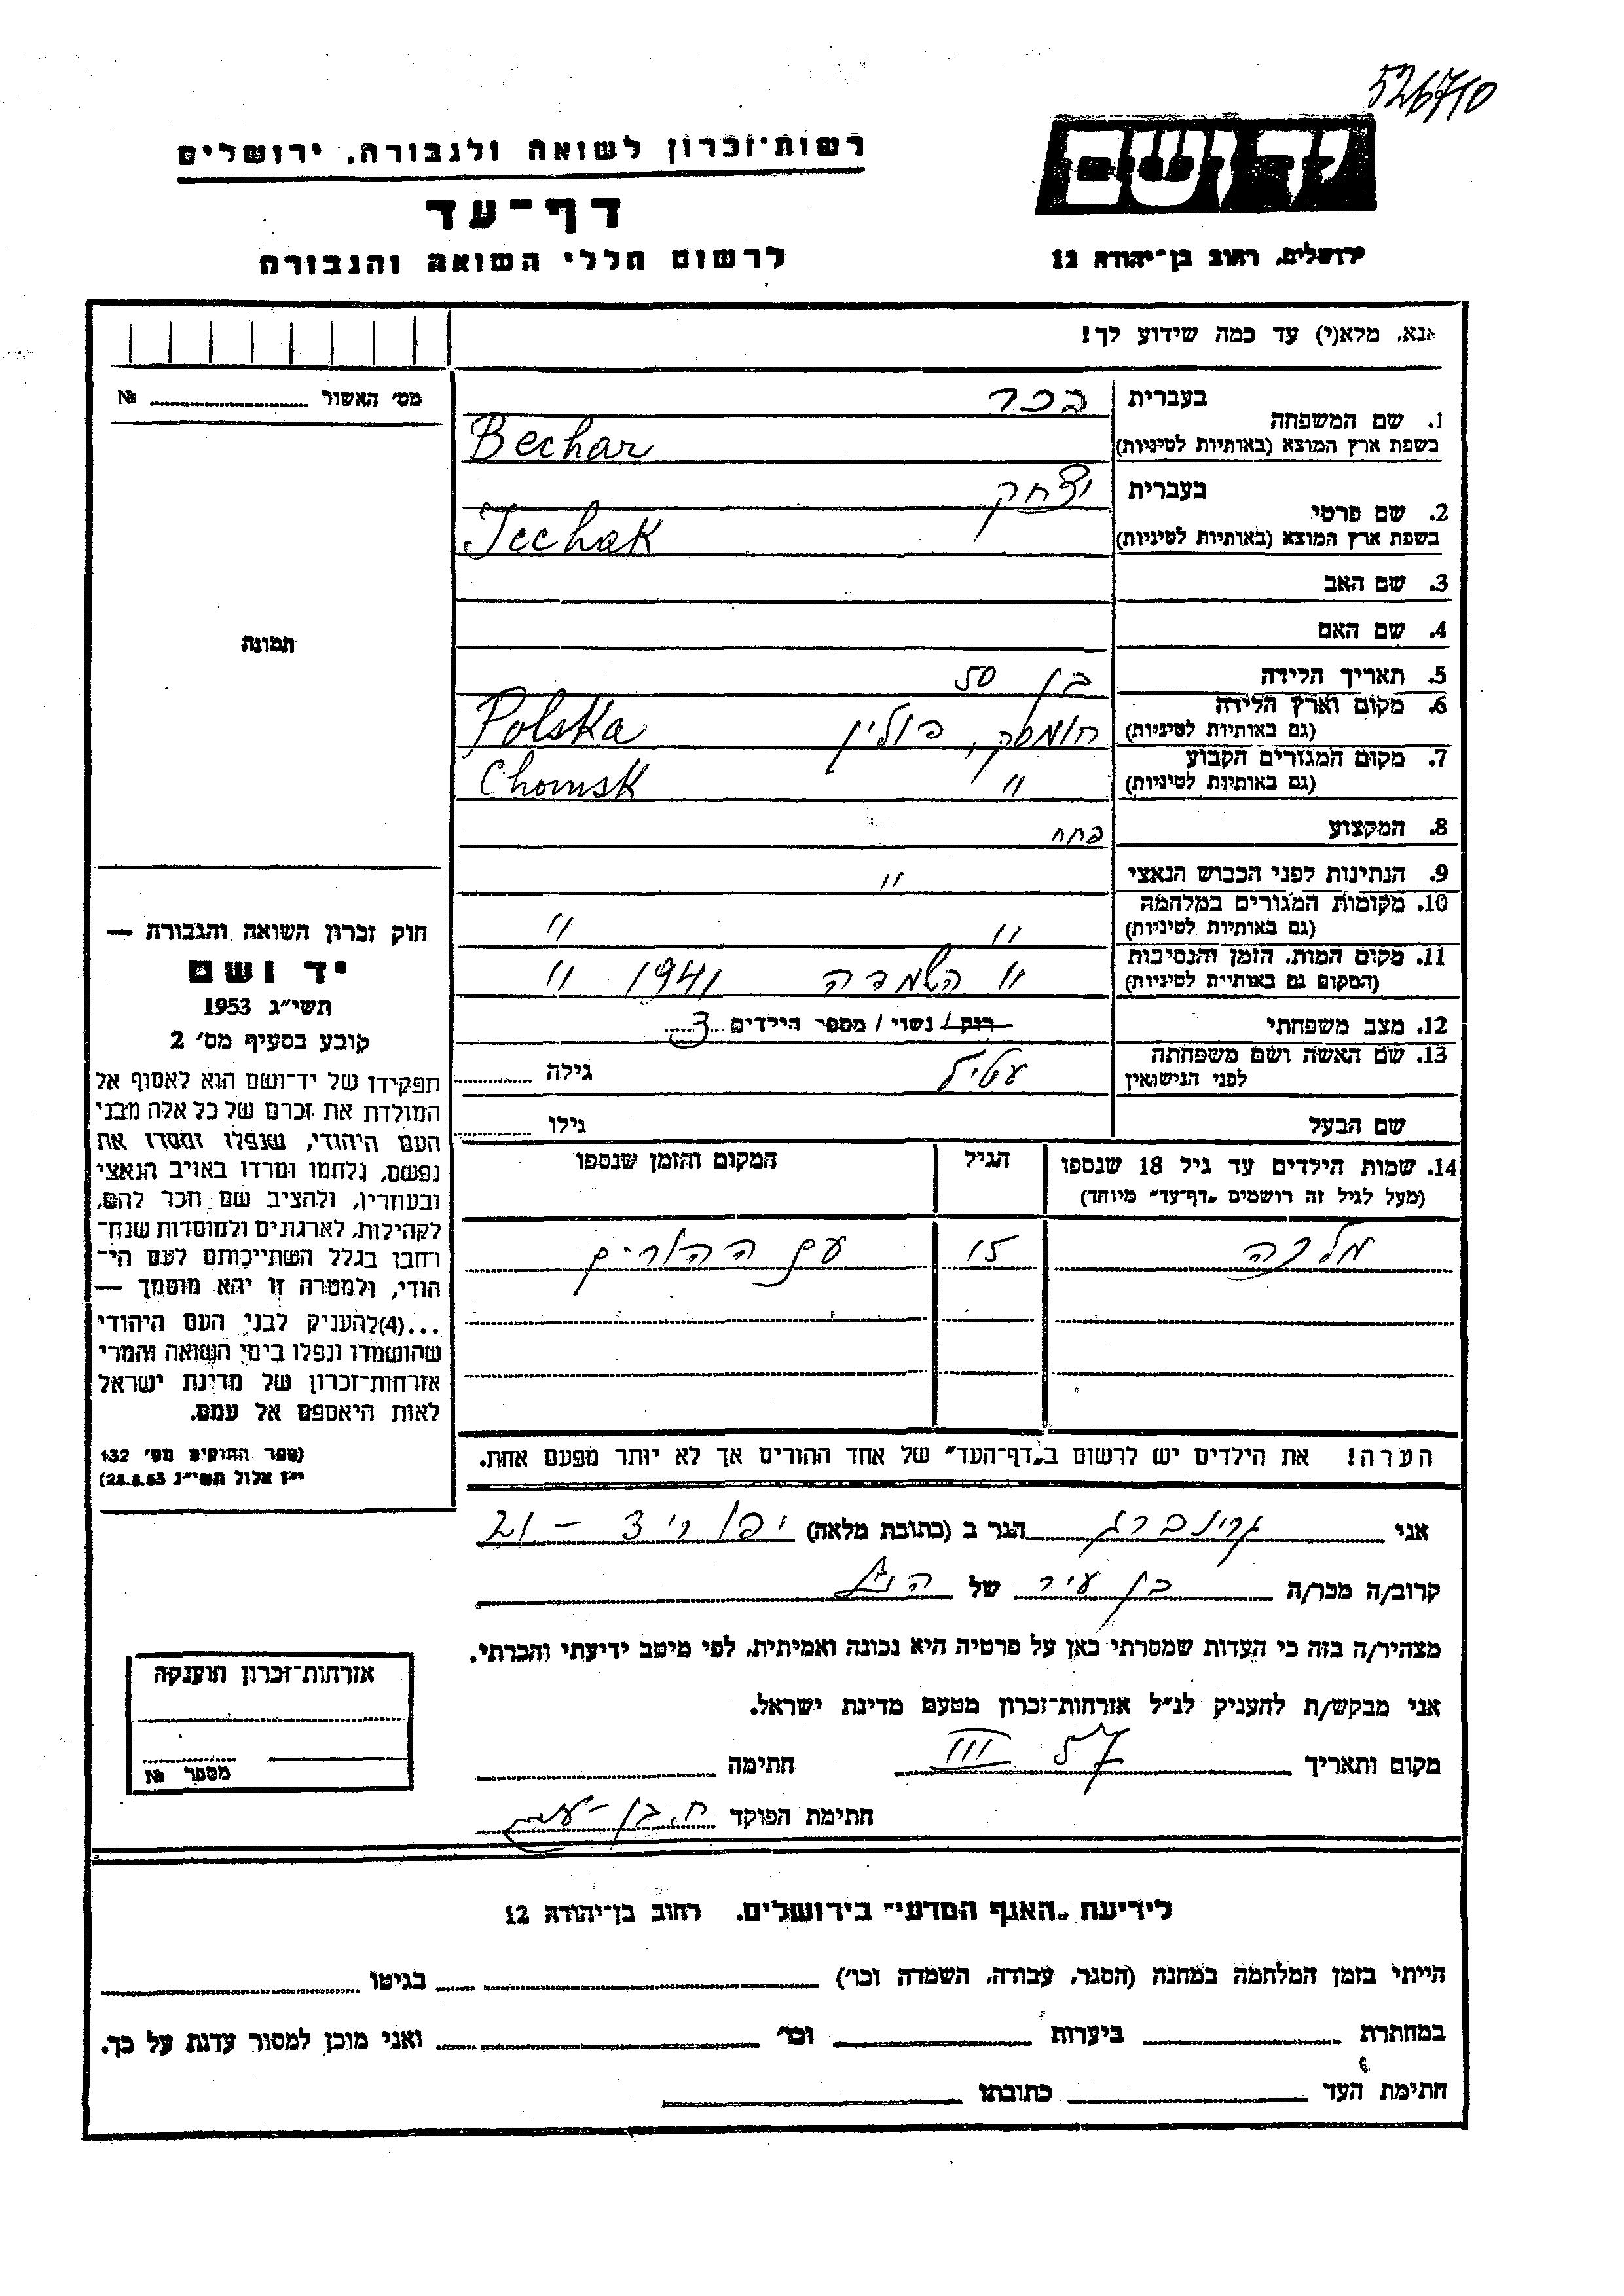 526710
יד ושם
ירושלים, רחוב בן־יהודה 12
רשות־זכרון לשואה ולגבורה, ירושלים
דף־עד
לרשום חללי השואה והגבורה
אנא, מלא(י) עד כמה שידוע לך!
מס׳ האשור № 
1. שם המשפחה
בעברית בכר
בשפת ארץ המוצא (באותיות לטיניות) Bechar
2. שם פרטי
בעברית יצחק
בשפת ארץ המוצא (באותיות לטיניות) Icchak
3. שם האב
4. שם האם
תמונה
5. תאריך הלידה בן 50
6. מקום וארץ הלידה
(גם באותיות לטיניות) חומסק, פולין Polska
7. מקום המגורים הקבוע
(גם באותיות לטיניות) " Chomsk
8. המקצוע פחח
9. הנתינות לפני הכבוש הנאצי "
10. מקומות המגורים במלחמה
(גם באותיות לטיניות) " "
11. מקום המות, הזמן והנסיבות
(המקום גם באותיות לטיניות) " השמדה 1941 "
12. מצב משפחתי רוק / נשוי / מספר הילדים 3
13. שם האשה ושם משפחתה
לפני הנישואין גילה
שם הבעל גילו
14. שמות הילדים עד גיל 18 שנספו הגיל המקום והזמן שנספו
(מעל לגיל זה רושמים „דף־עד” מיוחד)
מלכה 15 עם ההורים
הערה! את הילדים יש לרשום ב„דף־העד” של אחד ההורים אך לא יותר מפעם אחת.
חוק זכרון השואה והגבורה —
יד ושם
תשי״ג 1953
קובע בסעיף מס׳ 2
תפקידו של יד־ושם הוא לאסוף אל
המולדת את זכרם של כל אלה מבני
העם היהודי, שנפלו ומסרו את
נפשם, נלחמו ומרדו באויב הנאצי
ובעוזריו, ולהציב שם וזכר להם,
לקהילות, לארגונים ולמוסדות שנח־
רחבו בגלל השתייכותם לעם הי־
הודי, ולמטרה זו יהא מוסמך —
...(4) להעניק לבני העם היהודי
שהושמדו ונפלו בימי השואה והמרי
אזרחות־זכרון של מדינת ישראל
לאות היאספם אל עמם.
(ספר החוקים מס׳ 132
י״ז אלול תשי״ג 28.8.53)
אני גרינברג הגר ב (כתובת מלאה) יפו 21 –
קרוב/ה מכר/ה בן עיר של הנ״ל
מצהיר/ה בזה כי העדות שמסרתי כאן על פרטיה היא נכונה ואמיתית, לפי מיטב ידיעתי והכרתי.
אני מבקש/ת להעניק לנ״ל אזרחות־זכרון מטעם מדינת ישראל.
מקום ותאריך III 57 חתימה
חתימת הפוקד
אזרחות־זכרון הוענקה
מספר №
לידיעת „האגף המדעי” בירושלים. רחוב בן־יהודה 12
הייתי בזמן המלחמה במחנה (הסגר, עבודה, השמדה וכו׳) בגיטו
במחתרת ביערות וכו׳ ואני מוכן למסור עדות על כך.
חתימת העד כתובתו